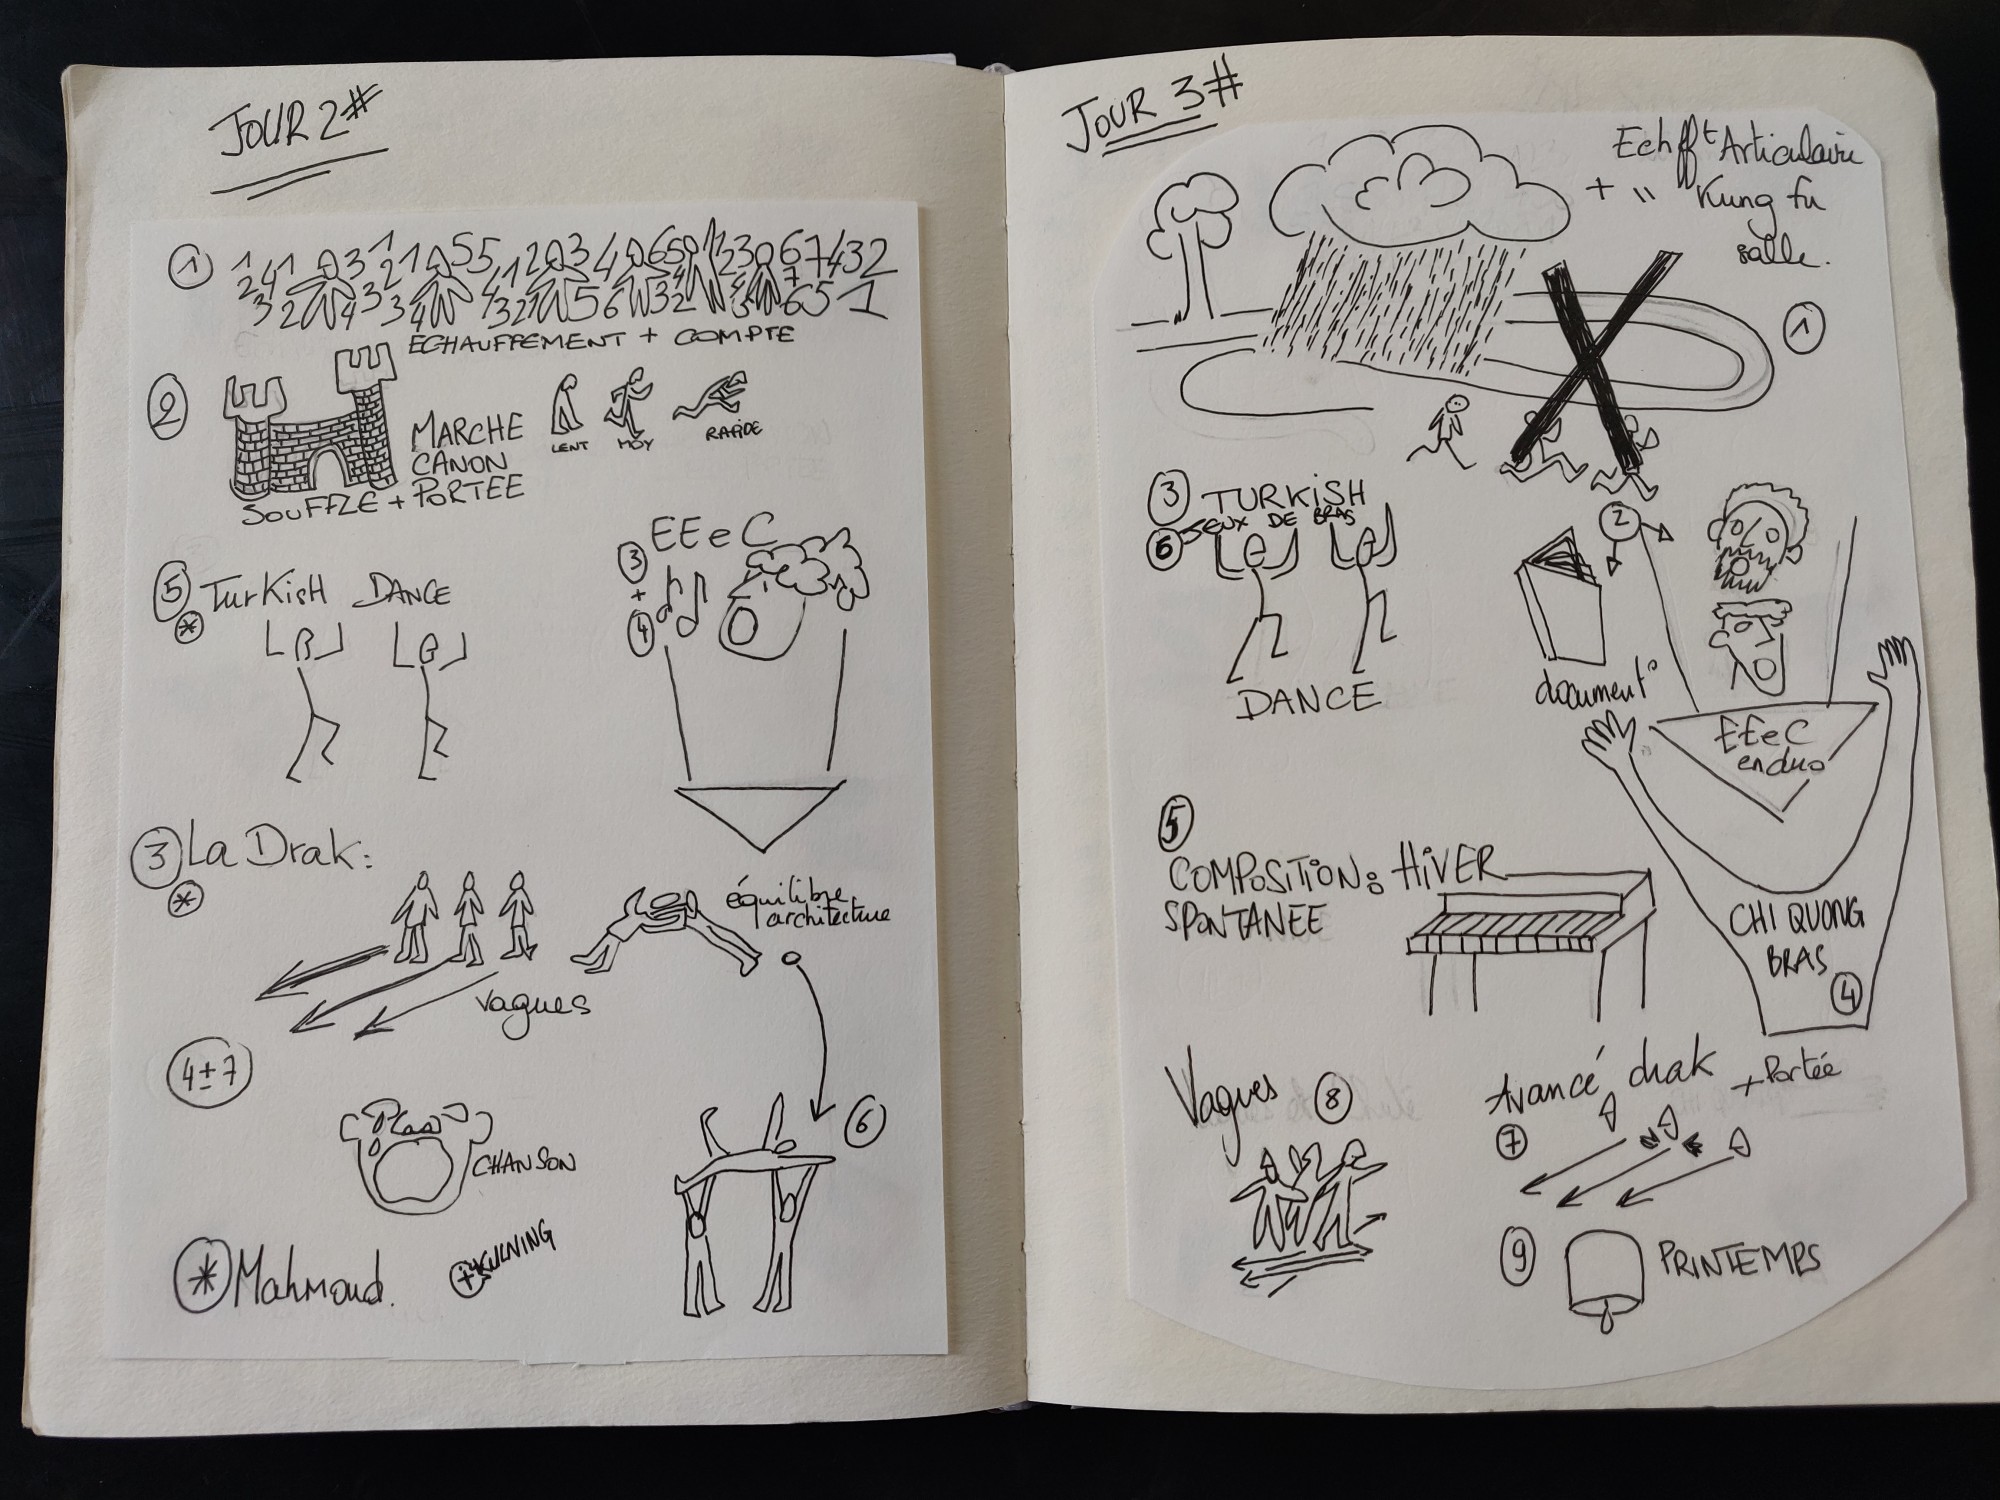 JOUR 2#
1
1 1 3 1 1 5 5 1 2 3 4 6 5 1 2 3 6 7 4 3 2
ECHAUFFEMENT + COMPTE
2
MARCHE
CANON
SOUFFLE + PORTEE
LENT MOY RAPIDE
5 TURKISH DANCE
*
EEeC
3
+
4
3 La Drak:
*
équilibre
architecture
vagues
4±7
CHANSON
6
* Mahmoud.
+ KULNING
JOUR 3#
Echfft Articulaire
+ " Kung fu
salle.
1
3 TURKISH
6 JEUX DE BRAS
DANCE
2
document°
EEeC
en duo
5
COMPOSITION: HIVER
SPONTANEE
CHI QUONG
BRAS
4
Vagues 8
Avancé drak + Portée
7
9 PRINTEMPS